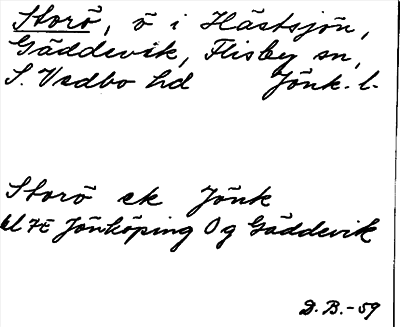 Storö, ö i Hästsjön,
Gäddevik, Flisby sn,
S. Vedbo hd Jönk. l.
Storö ek Jönk
bl 7E Jönköping Og Gäddevik
D. B. -59